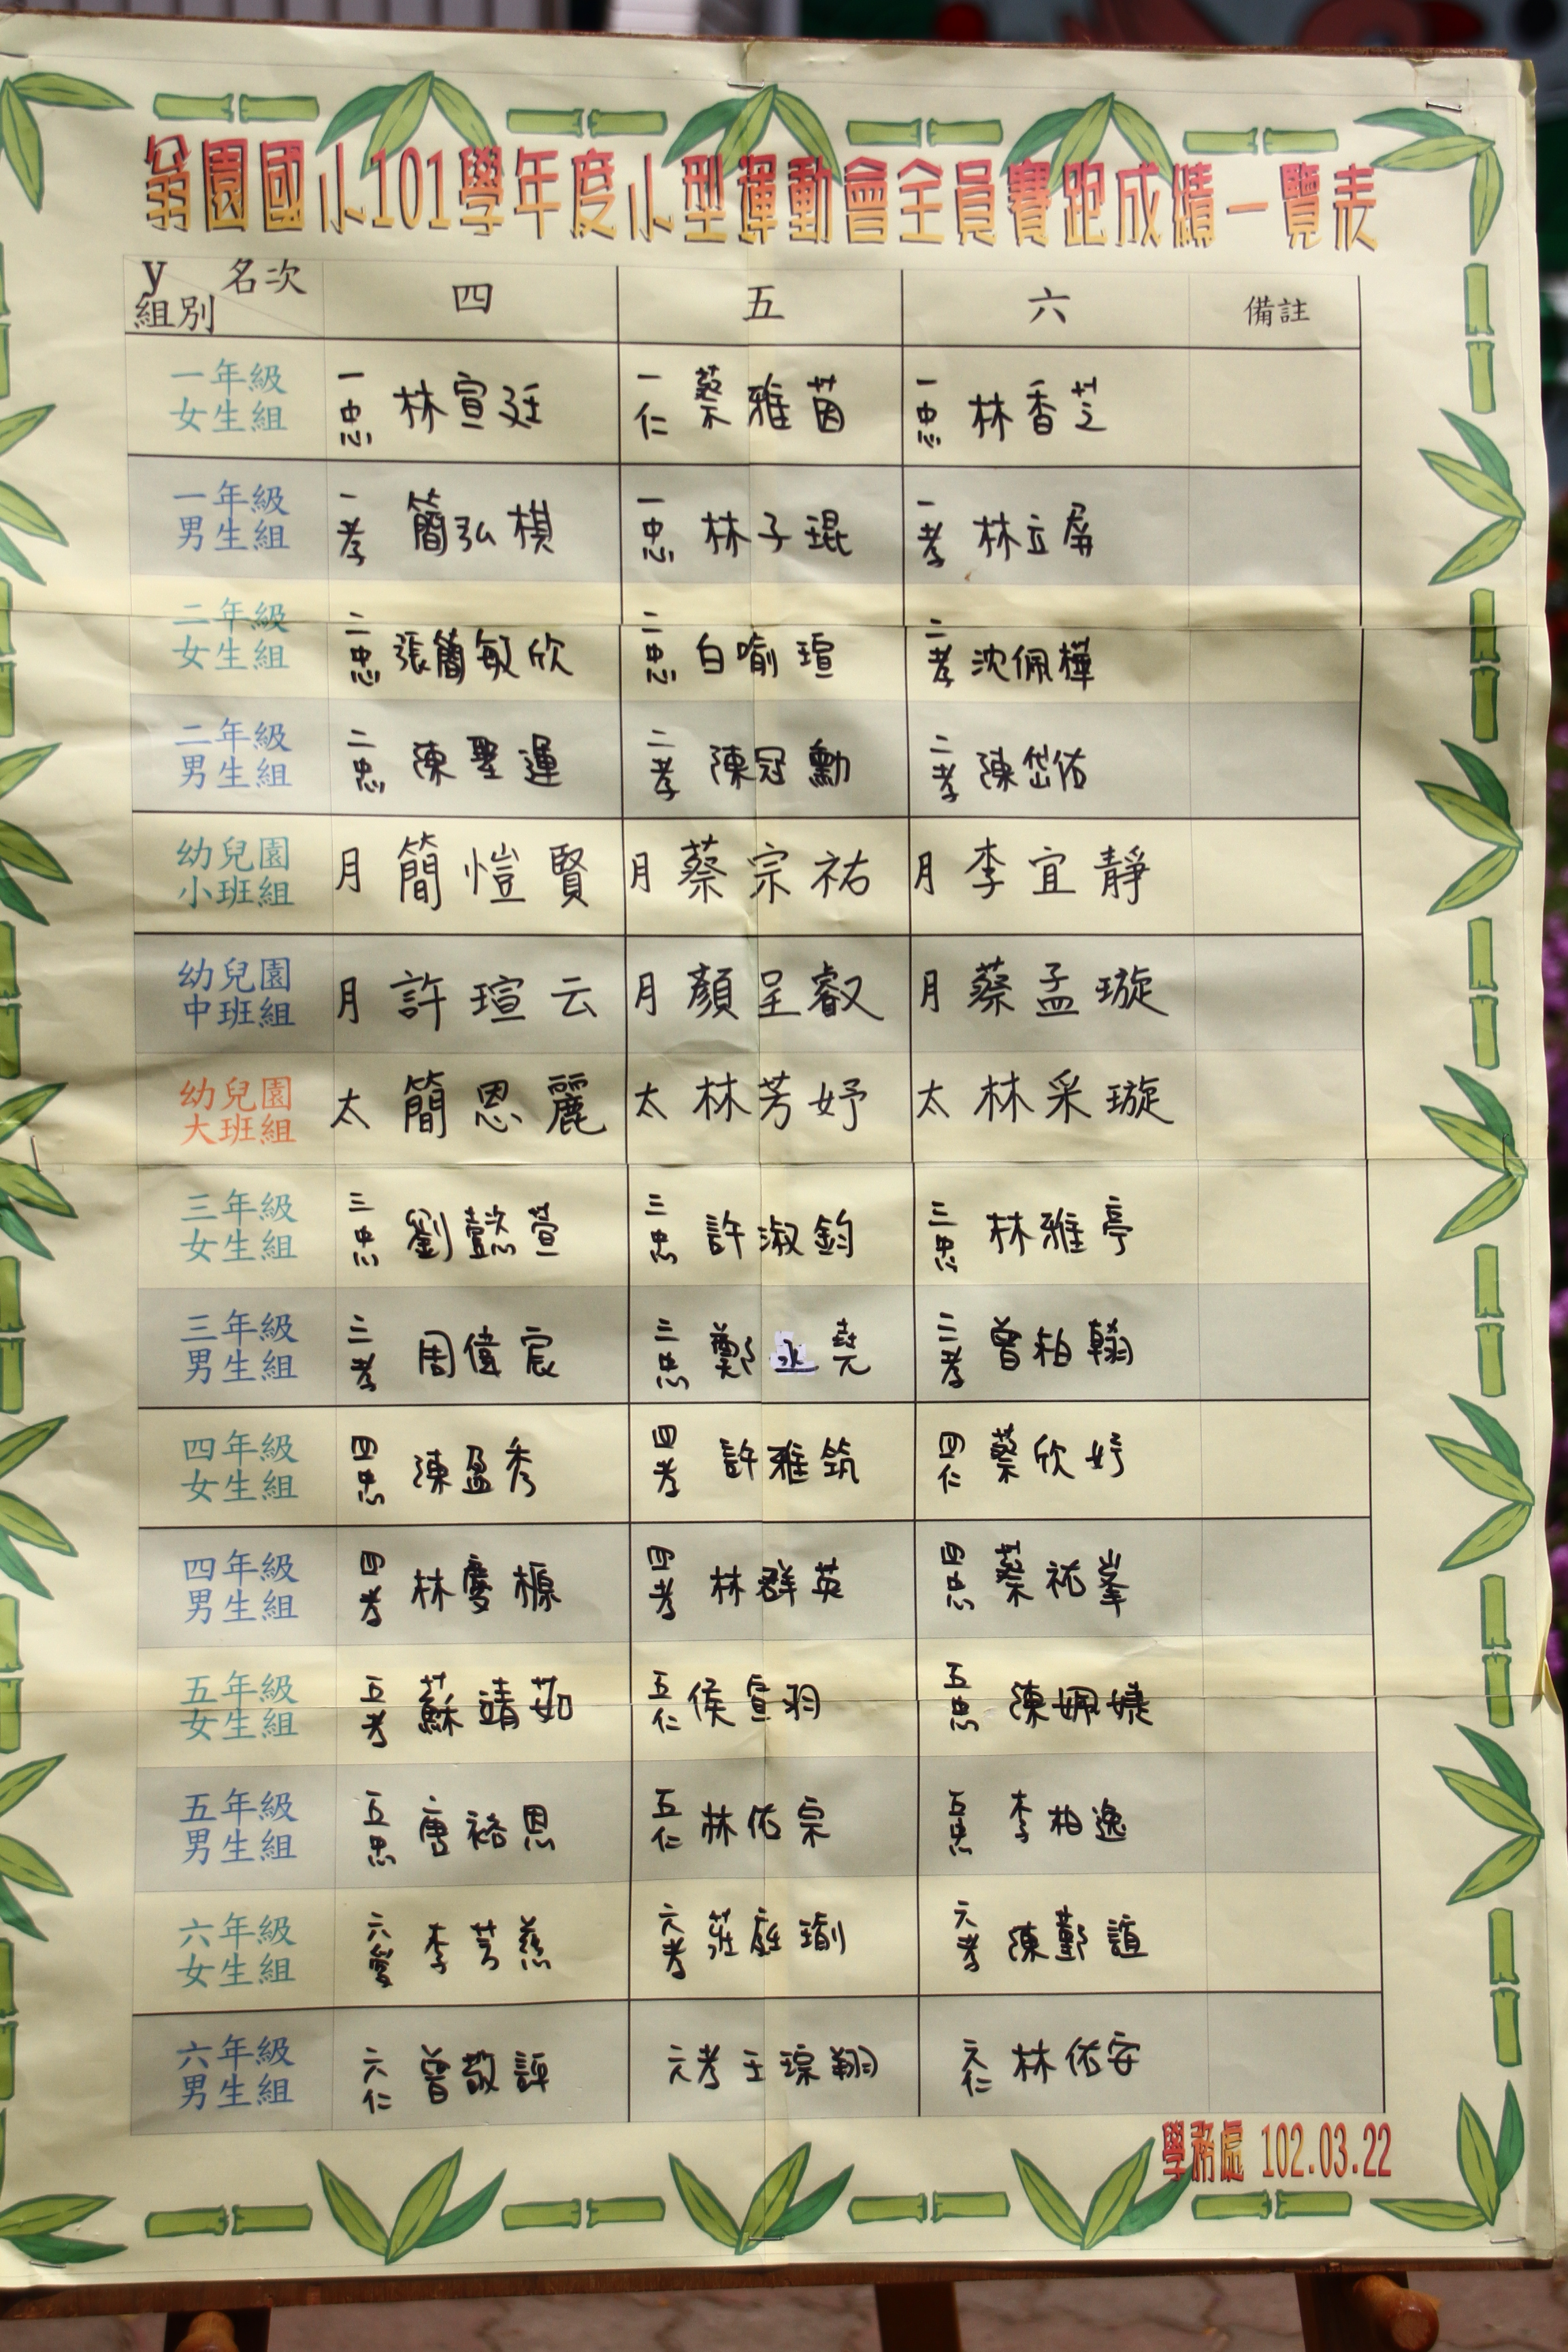 翁園國小101學年度小型運動會全員賽跑成績一覽表
y 名次 組別 四 五 六 備註
一年級女生組 一忠 林宣廷 一仁 蔡雅茵 一忠 林香芝
一年級男生組 一孝 簡弘棋 一忠 林子琨 一孝 林立屏
二年級女生組 二忠 張簡敏欣 二忠 白喻瑄 二孝 沈佩樺
二年級男生組 二忠 陳聖運 二孝 陳冠勳 二孝 陳岱佑
幼兒園小班組 月 簡愷賢 月 蔡宗祐 月 李宜靜
幼兒園中班組 月 許瑄云 月 顏呈叡 月 蔡孟璇
幼兒園大班組 太 簡恩麗 太 林芳妤 太 林采璇
三年級女生組 三忠 劉懿萱 三忠 許淑鈞 三忠 林雅亭
三年級男生組 三孝 周偉宸 三忠 鄭丞堯 三孝 曾柏翰
四年級女生組 四忠 陳盈秀 四孝 許雅筑 四仁 蔡欣妤
四年級男生組 四孝 林慶榞 四孝 林群英 四忠 蔡祐峯
五年級女生組 五孝 蘇靖茹 五仁 侯宣羽 五忠 陳姵婕
五年級男生組 五忠 唐裕恩 五仁 林佑宗 五忠 李柏逸
六年級女生組 六愛 李芳慈 六孝 莊庭瑜 六孝 陳勤誼
六年級男生組 六仁 曾敬評 六孝 王琮翔 六仁 林佑安
學務處 102.03.22